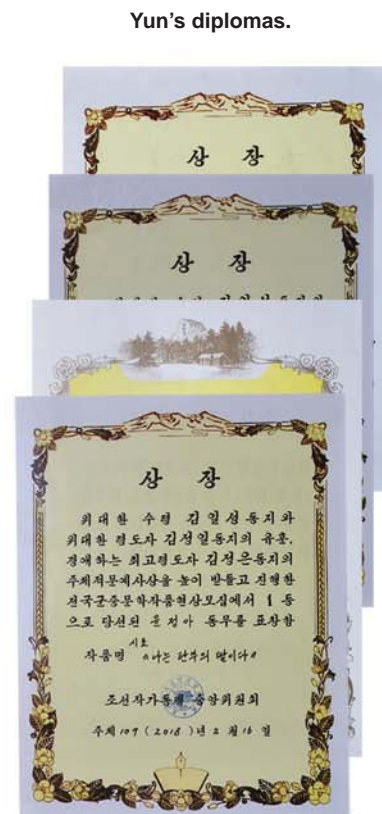 Yun's diplomas.
상 장
상 장
상 장
위대한 수령 김일성동지와
위대한 령도자 김정일동지의 유훈,
경애하는 최고령도자 김정은동지의
주체적문예사상을 높이 받들고 진행한
전국군중문학작품현상모집에서 1 등
으로 당선된 윤정아 동무를 표창함
시초
작품명 《나는 탄부의 딸이다》
조선작가동맹 중앙위원회
주체 107 (2018)년 2 월 16 일